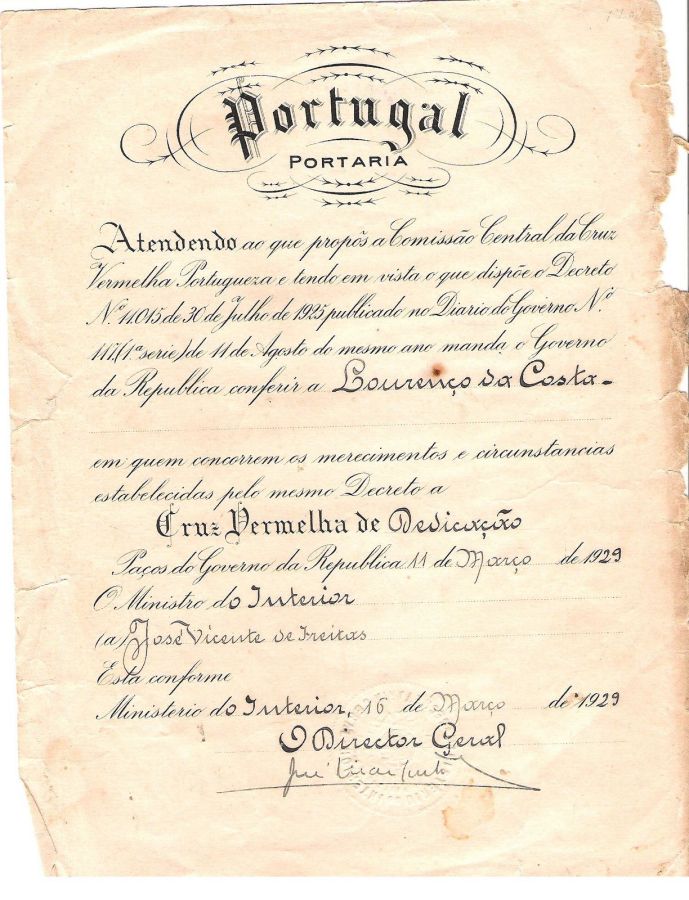 Portugal
PORTARIA
Atendendo ao que propôs a Comissão Central da Cruz
Vermelha Portugueza e tendo em vista o que dispõe o Decreto
N.º 11015 de 30 de Julho de 1925 publicado no Diario do Governo N.º
117 (1ª serie) de 11 de Agosto do mesmo ano manda o Governo
da Republica conferir a Lourenço da Costa-
em quem concorrem os merecimentos e circunstancias
estabelecidas pelo mesmo Decreto a
Cruz Vermelha de Dedicação
Paços do Governo da Republica 11 de Março de 1929
O Ministro do Interior
(a) José Vicente de Freitas
Está conforme
Ministerio do Interior, 16 de Março de 1929
O Director Geral
José